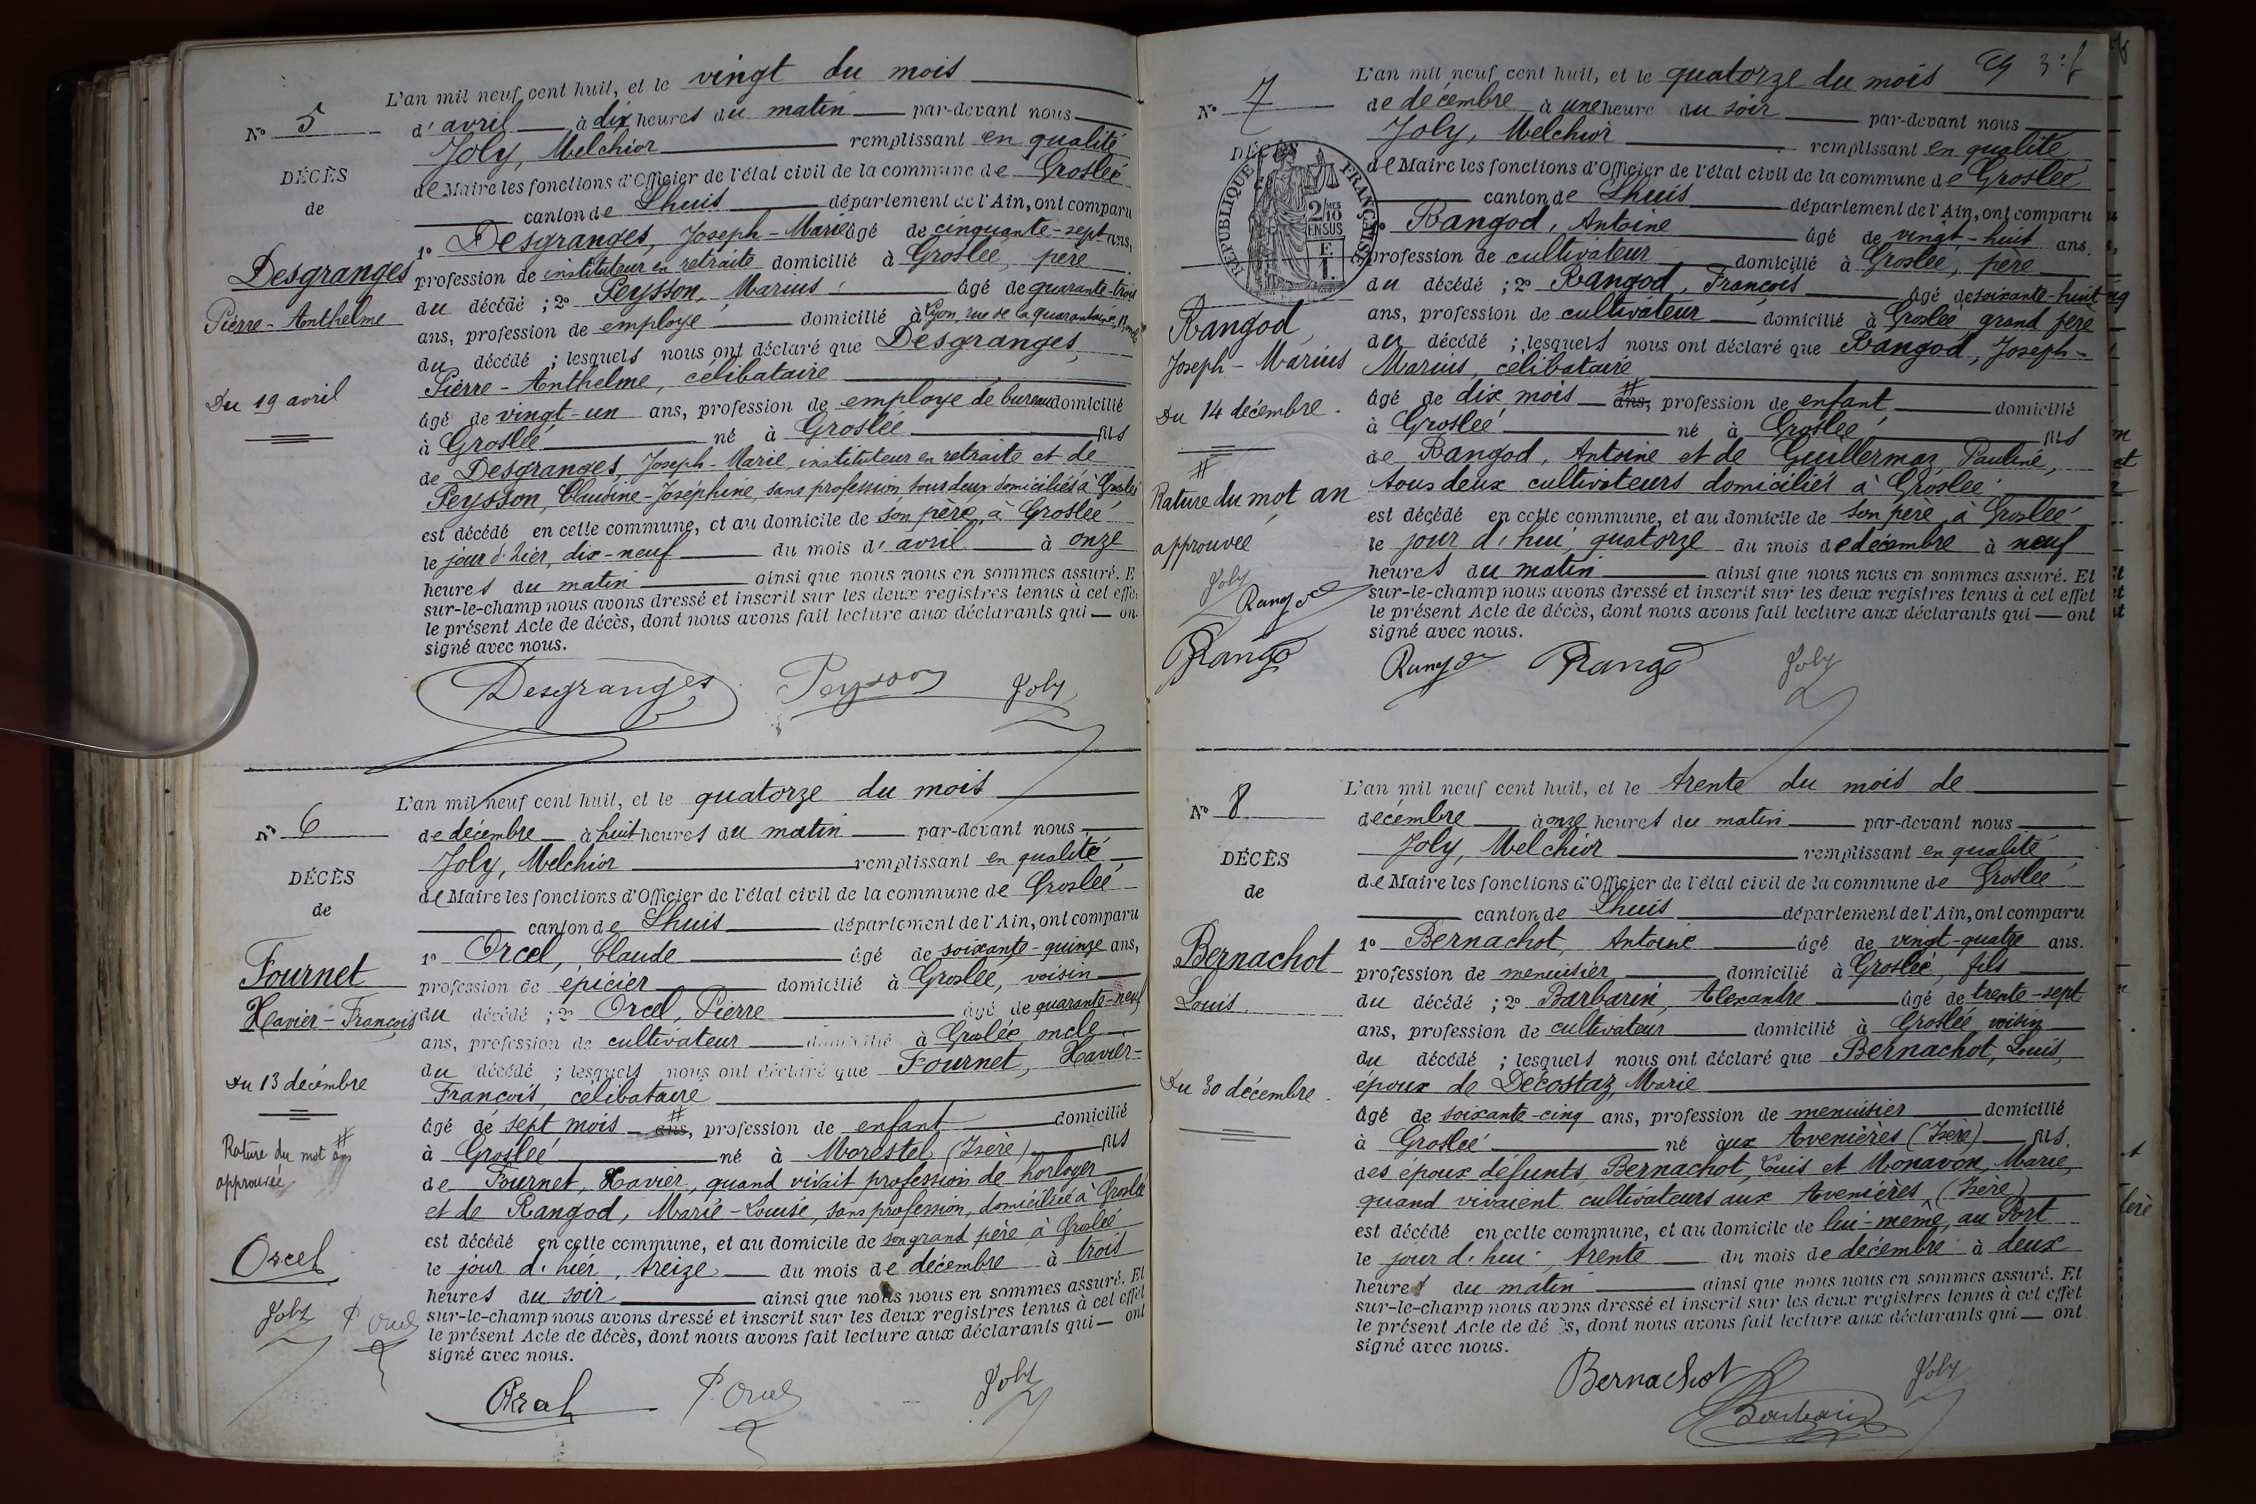 N° 5
DÉCÈS
de
Desgranges
Pierre-Anthelme
Du 19 avril
L'an mil neuf cent huit, et le vingt du mois
d'avril à dix heures du matin par-devant nous
Joly, Melchior remplissant en qualité
de Maire les fonctions d'Officier de l'état civil de la commune de Groslée
canton de Lhuis département de l'Ain, ont comparu
1° Desgranges, Joseph-Marie âgé de cinquante-sept ans,
profession de instituteur en retraite domicilié à Groslée, père
du décédé ; 2° Peysson, Marius âgé de quarante-trois
ans, profession de employé domicilié à Lyon, rue de la quarantaine, 11, oncle
du décédé ; lesquels nous ont déclaré que Desgranges,
Pierre-Anthelme, célibataire
âgé de vingt-un ans, profession de employé de bureau domicilié
à Groslée né à Groslée fils
de Desgranges, Joseph-Marie, instituteur en retraite et de
Peysson, Claudine-Joséphine, sans profession, tous deux domiciliés à Groslée
est décédé en cette commune, et au domicile de son père, à Groslée
le jour d'hier, dix-neuf du mois d'avril à onze
heures du matin ainsi que nous nous en sommes assuré. E
sur-le-champ nous avons dressé et inscrit sur les deux registres tenus à cet effe
le présent Acte de décès, dont nous avons fait lecture aux déclarants qui — on
signé avec nous.
Desgranges Peysson Joly
N° 6
DÉCÈS
de
Fournet
Xavier-François
Du 13 décembre
Rature du mot # ans
approuvée
Orcel
Joly P Orcel
L'an mil neuf cent huit, et le quatorze du mois
de décembre à huit heures du matin par-devant nous
Joly, Melchior remplissant en qualité
de Maire les fonctions d'Officier de l'état civil de la commune de Groslée
canton de Lhuis département de l'Ain, ont comparu
1° Orcel, Claude âgé de soixante-quinze ans,
profession de épicier domicilié à Groslée, voisin
du décédé ; 2° Orcel, Pierre âgé de quarante-neuf
ans, profession de cultivateur domicilié à Groslée, oncle
du décédé ; lesquels nous ont déclaré que Fournet, Xavier-
François, célibataire
âgé de sept mois # ans, profession de enfant domicilié
à Groslée né à Morestel (Isère) fils
de Fournet, Xavier, quand vivait profession de horloger
et de Rangod, Marie-Louise, sans profession, domiciliée à Groslée
est décédé en cette commune, et au domicile de son grand père à Groslée
le jour d'hier, treize du mois de décembre à trois
heures du soir ainsi que nous nous en sommes assuré. Et
sur-le-champ nous avons dressé et inscrit sur les deux registres tenus à cet effet
le présent Acte de décès, dont nous avons fait lecture aux déclarants qui — ont
signé avec nous.
Orcel P. Orcel Joly
N° 7
DÉCÈS
RÉPUBLIQUE FRANÇAISE
2/10 MES
EN SUS
E.
T.
Rangod,
Joseph-Marius
Du 14 décembre.
#
Rature du mot an
approuvée
Joly
Rangod
Rangod
L'an mil neuf cent huit, et le quatorze du mois
de décembre à une heure du soir par-devant nous
Joly, Melchior remplissant en qualité
de Maire les fonctions d'Officier de l'état civil de la commune de Groslée
canton de Lhuis département de l'Ain, ont comparu
Rangod, Antoine âgé de vingt-huit ans.
profession de cultivateur domicilié à Groslée, père
du décédé ; 2° Rangod, François âgé de soixante-huit
ans, profession de cultivateur domicilié à Groslée grand père
du décédé ; lesquels nous ont déclaré que Rangod, Joseph-
Marius, célibataire
âgé de dix mois # ans, profession de enfant domicilié
à Groslée né à Groslée fils
de Rangod, Antoine et de Guillermaz, Pauline,
tous deux cultivateurs domiciliés à Groslée
est décédé en cette commune, et au domicile de son père à Groslée
le jour d'hui quatorze du mois de décembre à neuf
heures du matin ainsi que nous nous en sommes assuré. Et
sur-le-champ nous avons dressé et inscrit sur les deux registres tenus à cet effet
le présent Acte de décès, dont nous avons fait lecture aux déclarants qui — ont
signé avec nous.
Rangod Rangod Joly
N° 8
DÉCÈS
de
Bernachot
Louis
Du 30 décembre.
L'an mil neuf cent huit, et le trente du mois de
décembre à onze heures du matin par-devant nous
Joly, Melchior remplissant en qualité
de Maire les fonctions d'Officier de l'état civil de la commune de Groslée
canton de Lhuis département de l'Ain, ont comparu
1° Bernachot, Antoine âgé de vingt-quatre ans.
profession de menuisier domicilié à Groslée, fils
du décédé ; 2° Barbarin, Alexandre âgé de trente-sept
ans, profession de cultivateur domicilié à Groslée, voisin
du décédé ; lesquels nous ont déclaré que Bernachot, Louis,
époux de Decostaz, Marie
âgé de soixante-cinq ans, profession de menuisier domicilié
à Groslée né aux Avenières (Isère) fils.
des époux défunts Bernachot, Louis et Monavon, Marie,
quand vivaient cultivateurs aux Avenières, (Isère)
est décédé en cette commune, et au domicile de lui-même, au Port
le jour d'hui trente du mois de décembre à deux
heures du matin ainsi que nous nous en sommes assuré. Et
sur-le-champ nous avons dressé et inscrit sur les deux registres tenus à cet effet
le présent Acte de dé s, dont nous avons fait lecture aux déclarants qui — ont
signé avec nous.
Bernachot Joly
Barbarin